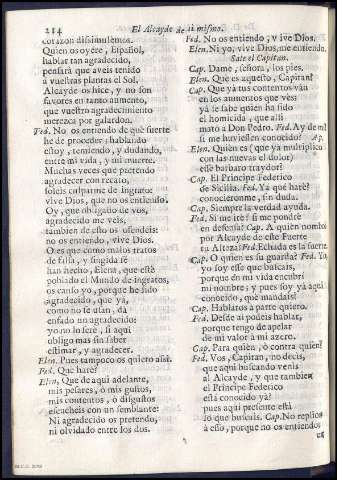 214
El Alcayde de si mismo.
corazon dissimulemos.
Quien os oyere, Español,
hablar tan agradecido,
pensarà que aveis tenido
à vuestras plantas el Sol.
Alcayde os hice, y no son
favores en tanto aumento,
que vuestro agradecimiento
merezca por galardon.
Fed. No os entiendo de què suerte
he de proceder; hablando
estoy, temiendo, y dudando,
entre mi vida, y mi muerte.
Muchas veces que pretendo
agradecer con recato,
soleis culparme de ingrato:
vive Dios, que no os entiendo.
Oy, que obligado me vos,
agradecido me veis,
tambien de esto os ofendeis:
no os entiendo, vive Dios.
O es que como malos tratos
de falsa, y fingida fè
han hecho, Elena, que estè
poblado el Mundo de ingratos,
os canso yo, porque he sido
agradecido, que ya,
como no se usan, dà
enfado un agradecido:
yo no lo serè, si aqui
obligo mas sin saber
estimar, y agradecer.
Elen. Pues tampoco os quiero assi.
Fed. Què harè?
Elen. Que de aqui adelante,
mis pesares, ò mis gustos,
mis contentos, ò disgustos
escucheis con un semblante:
Ni agradecido os pretendo,
ni olvidado entre los dos.
Fed. No os entiendo, vive Dios.
Elen. Ni yo, vive Dios, me entiendo.
Sale el Capitan.
Cap. Dame, señora, los pies.
Elen. Que es aquesto, Capitan?
Cap. Que ya tus contentos vàn
en los aumentos que vès:
yà se sabe quien ha sido
el homicida, que assi
matò à Don Pedro. Fed. Ay de mi!
si me huviessen conocido? Ap.
Elen. Quien es (que ya multiplica
con las nuevas el dolor)
esse barbaro traydor?
Cap. El Principe Federico
de Sicilia. Fed. Yà què harè?
conocieronme, sin duda.
Cap. Siempre la verdad ayuda.
Fed. Si me irè? si me pondrè
en defensa? Cap. A quien nombrò
por Alcayde de este Fuerte
tu Alteza? Fed. Echada es la suerte.
Cap. O quien es su guarda? Fed. Yo,
yo soy esse que buscais,
porque no es de mi encubrir
mi nombre; y pues soy yà aqui
conocido, què mandais?
Cap. Hablaros à parte quiero.
Fed. Desde ai podeis hablar,
porque tengo de apelar
de mi valor à mi azero.
Cap. Para quien, ò contra quien?
Fed. Vos, Capitan, no decis,
que aqui buscando venis
al Alcayde, y que tambien
el Principe Federico
està conocido yà?
pues aqui presente està
lo que buscais. Cap. No replico
à esso, porque no os entiendo